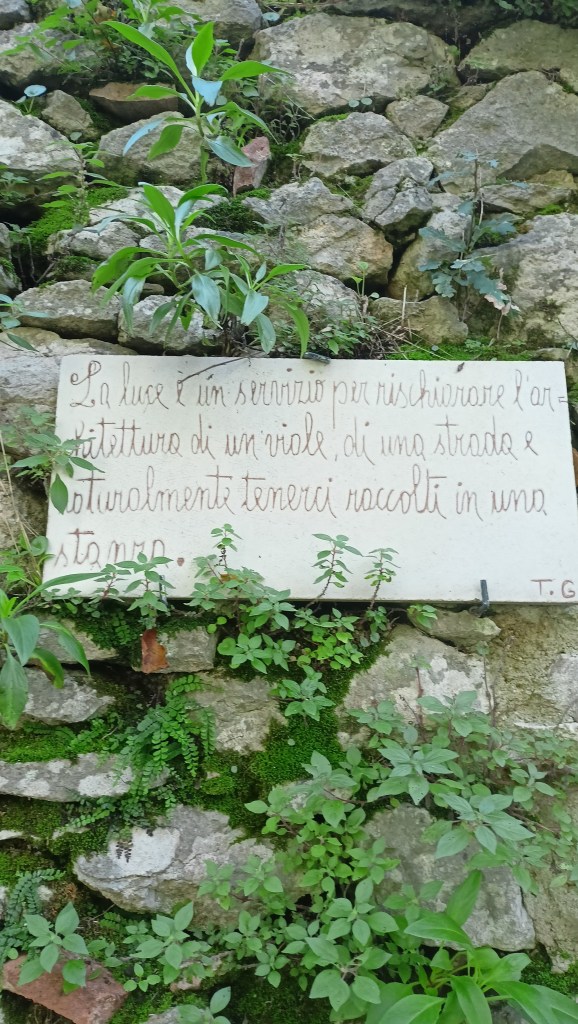 La luce è un servizio per rischiarare l'ar=
chitettura di un viale, di una strada e
naturalmente tenerci raccolti in una
stanza.
T. G